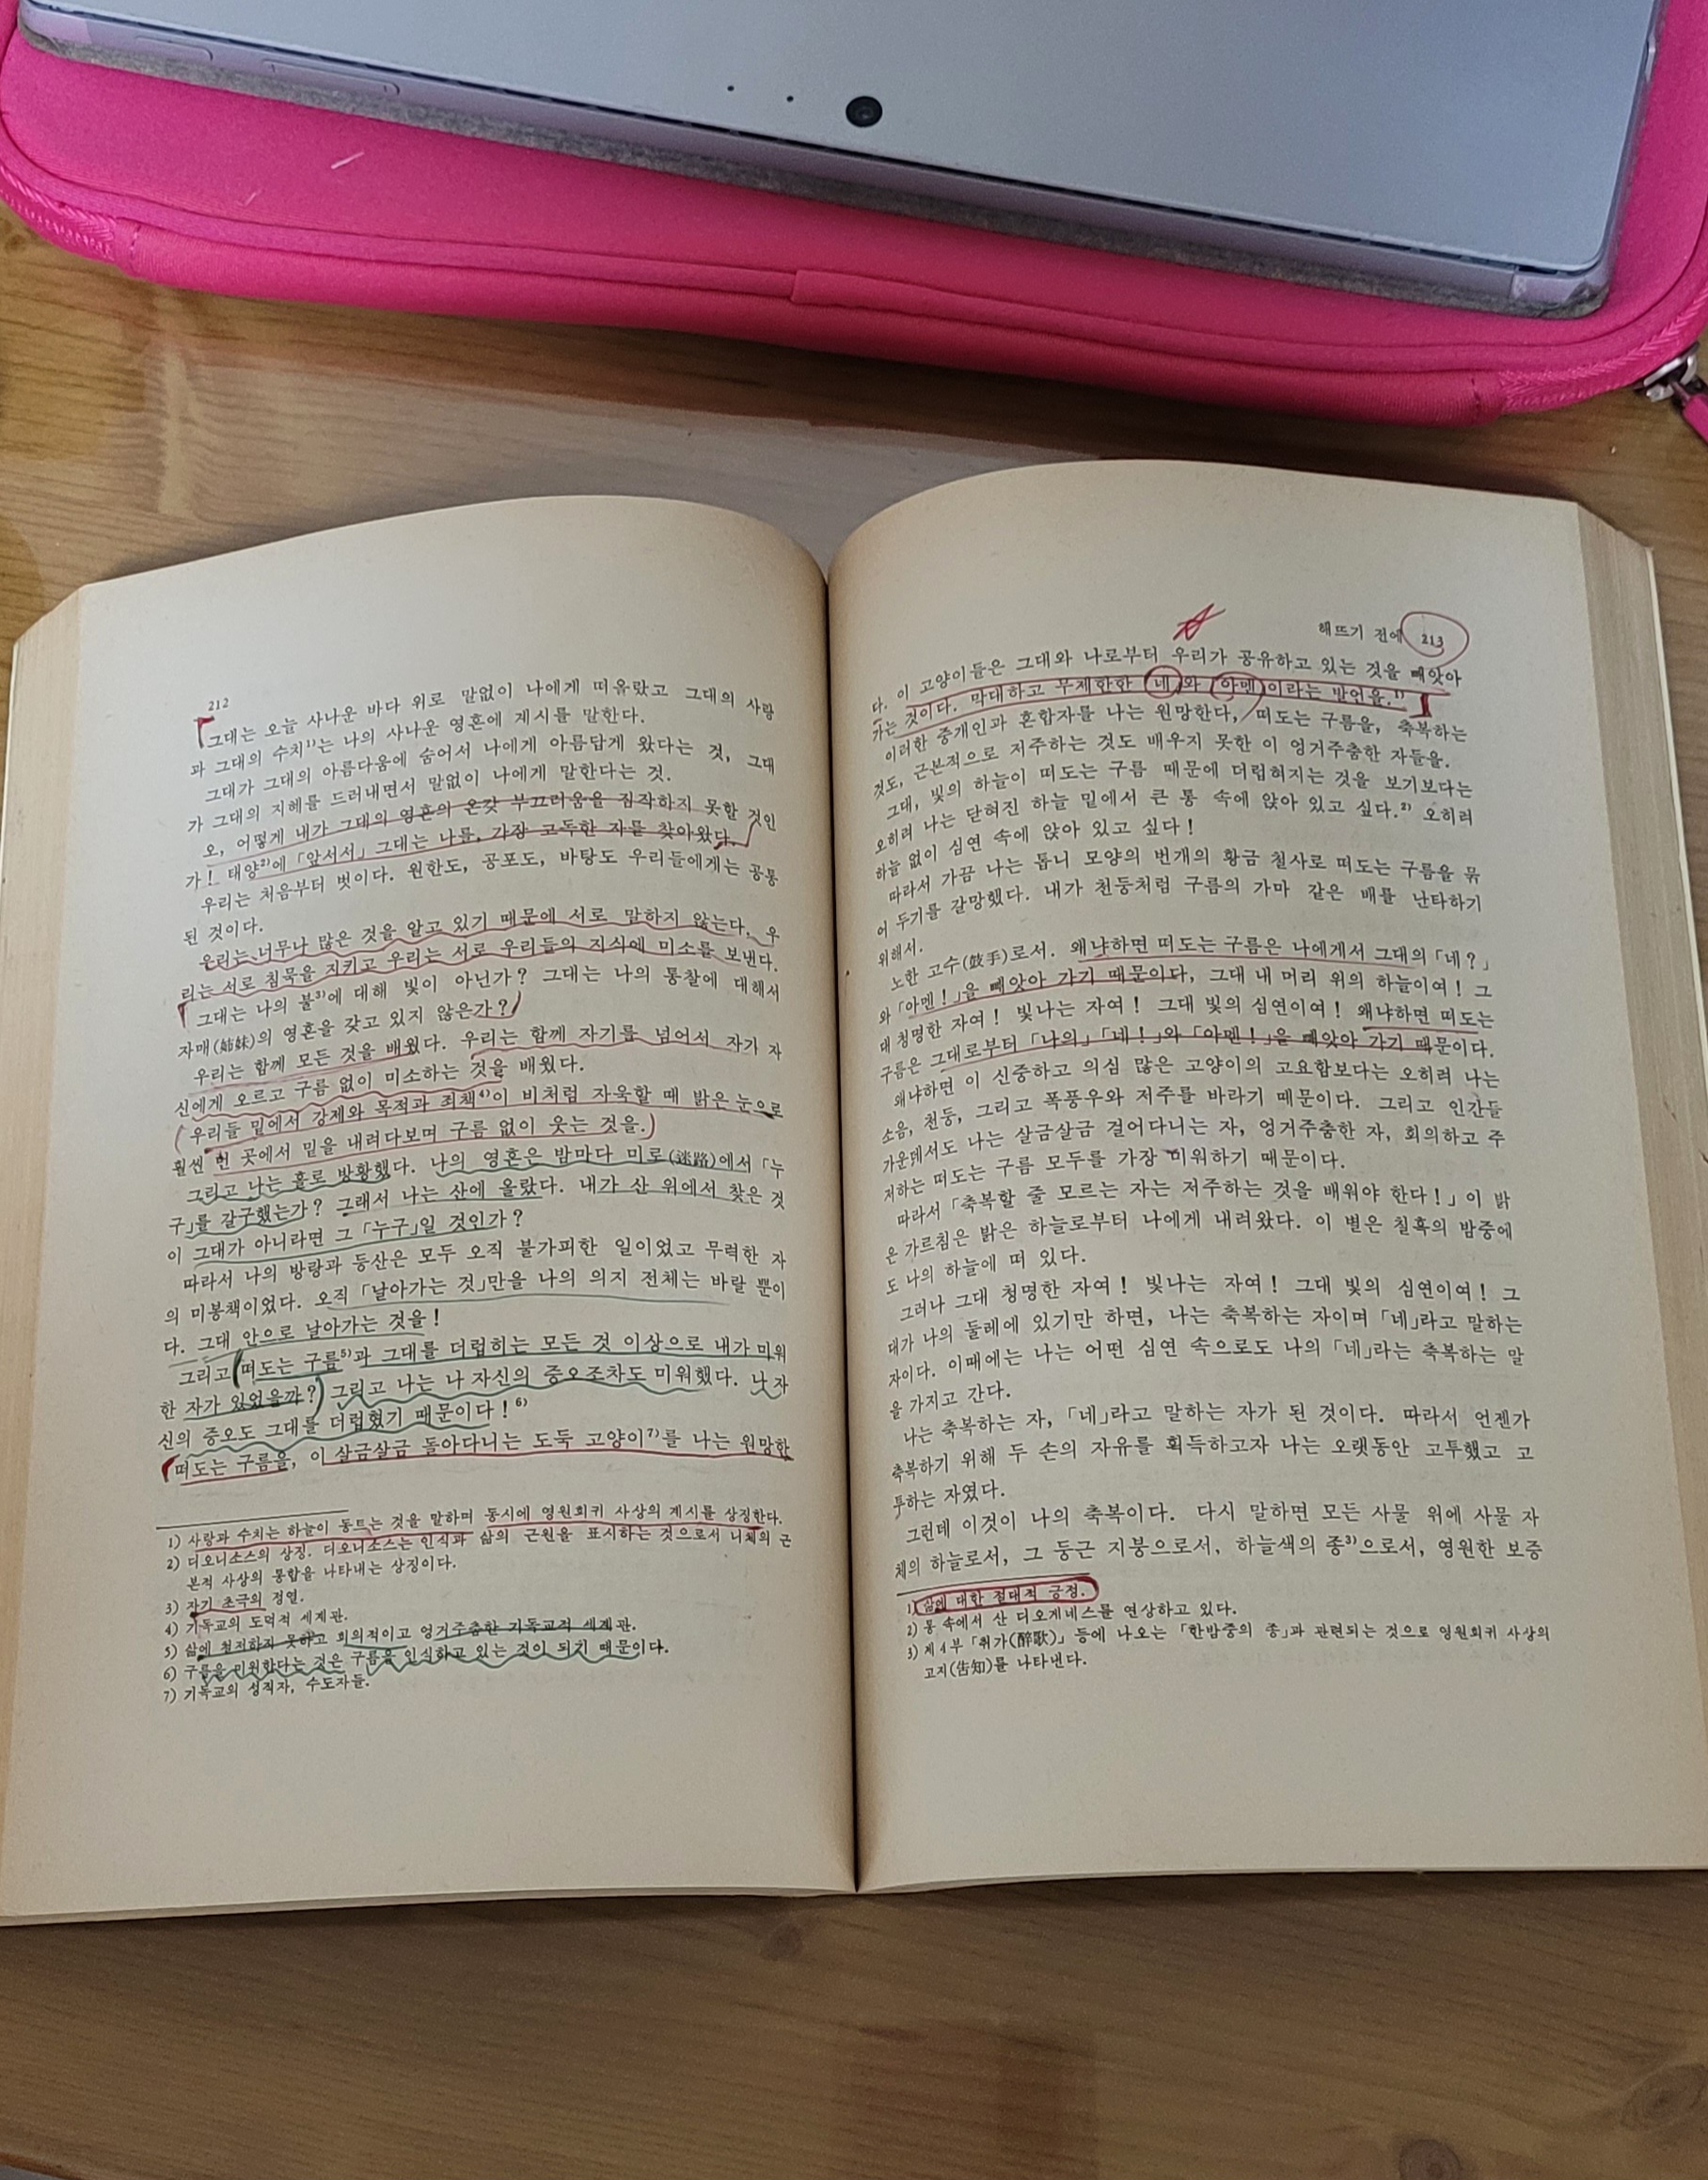 212
그대는 오늘 사나운 바다 위로 말없이 나에게 떠올랐고 그대의 사랑
과 그대의 수치1)는 나의 사나운 영혼에 계시를 말한다.
그대가 그대의 아름다움에 숨어서 나에게 아름답게 왔다는 것, 그대
가 그대의 지혜를 드러내면서 말없이 나에게 말한다는 것.
오, 어떻게 내가 그대의 영혼의 온갖 부끄러움을 짐작하지 못할 것인
가! 태양2)에 「앞서서」 그대는 나를, 가장 고독한 자를 찾아왔다.
우리는 처음부터 벗이다. 원한도, 공포도, 바탕도 우리들에게는 공통
된 것이다.
우리는 너무나 많은 것을 알고 있기 때문에 서로 말하지 않는다. 우
리는 서로 침묵을 지키고 우리는 서로 우리들의 지식에 미소를 보낸다.
그대는 나의 불3)에 대해 빛이 아닌가? 그대는 나의 통찰에 대해서
자매(姉妹)의 영혼을 갖고 있지 않은가?
우리는 함께 모든 것을 배웠다. 우리는 함께 자기를 넘어서 자기 자
신에게 오르고 구름 없이 미소하는 것을 배웠다.
(우리들 밑에서 강제와 목적과 죄책4)이 비처럼 자욱할 때 밝은 눈으로
훨씬 먼 곳에서 밑을 내려다보며 구름 없이 웃는 것을.)
그리고 나는 홀로 방황했다. 나의 영혼은 밤마다 미로(迷路)에서 「누
구」를 갈구했는가? 그래서 나는 산에 올랐다. 내가 산 위에서 찾은 것
이 그대가 아니라면 그 「누구」일 것인가?
따라서 나의 방랑과 등산은 모두 오직 불가피한 일이었고 무력한 자
의 미봉책이었다. 오직 「날아가는 것」만을 나의 의지 전체는 바랄 뿐이
다. 그대 안으로 날아가는 것을!
그리고 떠도는 구름5)과 그대를 더럽히는 모든 것 이상으로 내가 미워
한 자가 있었을까? 그리고 나는 나 자신의 증오조차도 미워했다. 나 자
신의 증오도 그대를 더럽혔기 때문이다!6)
떠도는 구름을, 이 살금살금 돌아다니는 도둑 고양이7)를 나는 원망한
1) 사랑과 수치는 하늘이 동트는 것을 말하며 동시에 영원회귀 사상의 계시를 상징한다.
2) 디오니소스의 상징. 디오니소스는 인식과 삶의 근원을 표시하는 것으로서 니체의 근
본적 사상의 통합을 나타내는 상징이다.
3) 자기 초극의 정열.
4) 기독교의 도덕적 세계관.
5) 삶에 철저하지 못하고 회의적이고 엉거주춤한 기독교적 세계관.
6) 구름을 미워한다는 것은 구름을 인식하고 있는 것이 되기 때문이다.
7) 기독교의 성직자, 수도자들.
해뜨기 전에 213
다. 이 고양이들은 그대와 나로부터 우리가 공유하고 있는 것을 빼앗아
가는 것이다. 막대하고 무제한한 네와 아멘이라는 발언을.1)
이러한 중개인과 혼합자를 나는 원망한다, 떠도는 구름을, 축복하는
것도, 근본적으로 저주하는 것도 배우지 못한 이 엉거주춤한 자들을.
그대, 빛의 하늘이 떠도는 구름 때문에 더럽혀지는 것을 보기보다는
오히려 나는 닫혀진 하늘 밑에서 큰 통 속에 앉아 있고 싶다.2) 오히려
하늘 없이 심연 속에 앉아 있고 싶다!
따라서 가끔 나는 톱니 모양의 번개의 황금 철사로 떠도는 구름을 묶
어 두기를 갈망했다. 내가 천둥처럼 구름의 가마 같은 배를 난타하기
위해서.
노한 고수(鼓手)로서. 왜냐하면 떠도는 구름은 나에게서 그대의 「네?」
와 「아멘!」을 빼앗아 가기 때문이다, 그대 내 머리 위의 하늘이여! 그
대 청명한 자여! 빛나는 자여! 그대 빛의 심연이여! 왜냐하면 떠도는
구름은 그대로부터 「나의」 「네!」와 「아멘!」을 빼앗아 가기 때문이다.
왜냐하면 이 신중하고 의심 많은 고양이의 고요함보다는 오히려 나는
소음, 천둥, 그리고 폭풍우와 저주를 바라기 때문이다. 그리고 인간들
가운데서도 나는 살금살금 걸어다니는 자, 엉거주춤한 자, 회의하고 주
저하는 떠도는 구름 모두를 가장 미워하기 때문이다.
따라서 「축복할 줄 모르는 자는 저주하는 것을 배워야 한다!」 이 밝
은 가르침은 밝은 하늘로부터 나에게 내려왔다. 이 별은 칠흑의 밤중에
도 나의 하늘에 떠 있다.
그러나 그대 청명한 자여! 빛나는 자여! 그대 빛의 심연이여! 그
대가 나의 둘레에 있기만 하면, 나는 축복하는 자이며 「네」라고 말하는
자이다. 이때에는 나는 어떤 심연 속으로도 나의 「네」라는 축복하는 말
을 가지고 간다.
나는 축복하는 자, 「네」라고 말하는 자가 된 것이다. 따라서 언젠가
축복하기 위해 두 손의 자유를 획득하고자 나는 오랫동안 고투했고 고
투하는 자였다.
그런데 이것이 나의 축복이다. 다시 말하면 모든 사물 위에 사물 자
체의 하늘로서, 그 둥근 지붕으로서, 하늘색의 종3)으로서, 영원한 보증
1) 삶에 대한 절대적 긍정.
2) 통 속에서 산 디오게네스를 연상하고 있다.
3) 제4부 「취가(醉歌)」 등에 나오는 「한밤중의 종」과 관련되는 것으로 영원회귀 사상의
고지(告知)를 나타낸다.